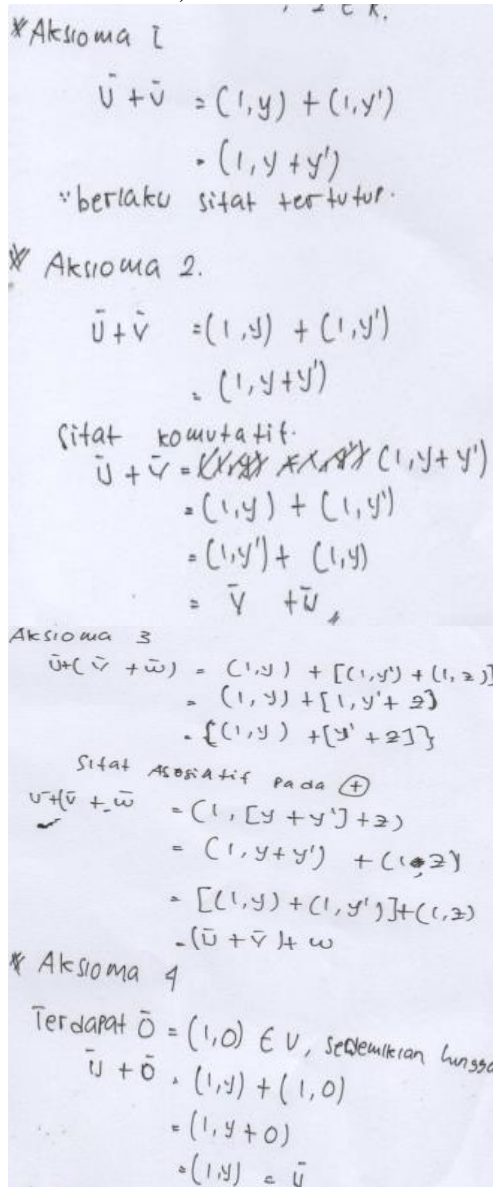 * Aksioma 1
ū + v̄ = (1,y) + (1,y')
= (1, y + y')
∵ berlaku sifat tertutup.
* Aksioma 2.
ū + v̄ = (1,y) + (1,y')
= (1, y+y')
Sifat komutatif.
ū + v̄ = (1, y+y')
= (1,y) + (1,y')
= (1,y') + (1,y)
= v̄ + ū
Aksioma 3
ū+( v̄ + w̄) = (1,y) + [(1,y') + (1,z)]
= (1,y) + [1, y'+ z]
= {(1,y) + [y' + z]}
Sifat Asosiatif pada ⊕
ū+(v̄ + w̄ = (1, [y + y'] + z)
= (1, y+y') + (1,z)
= [(1,y) + (1,y')]+(1,z)
= (ū + v̄)+ w
* Aksioma 4
Terdapat ō = (1,0) ∈ V, sedemikian hingga
ū + ō = (1,y) + (1,0)
= (1, y+0)
= (1,y) = ū